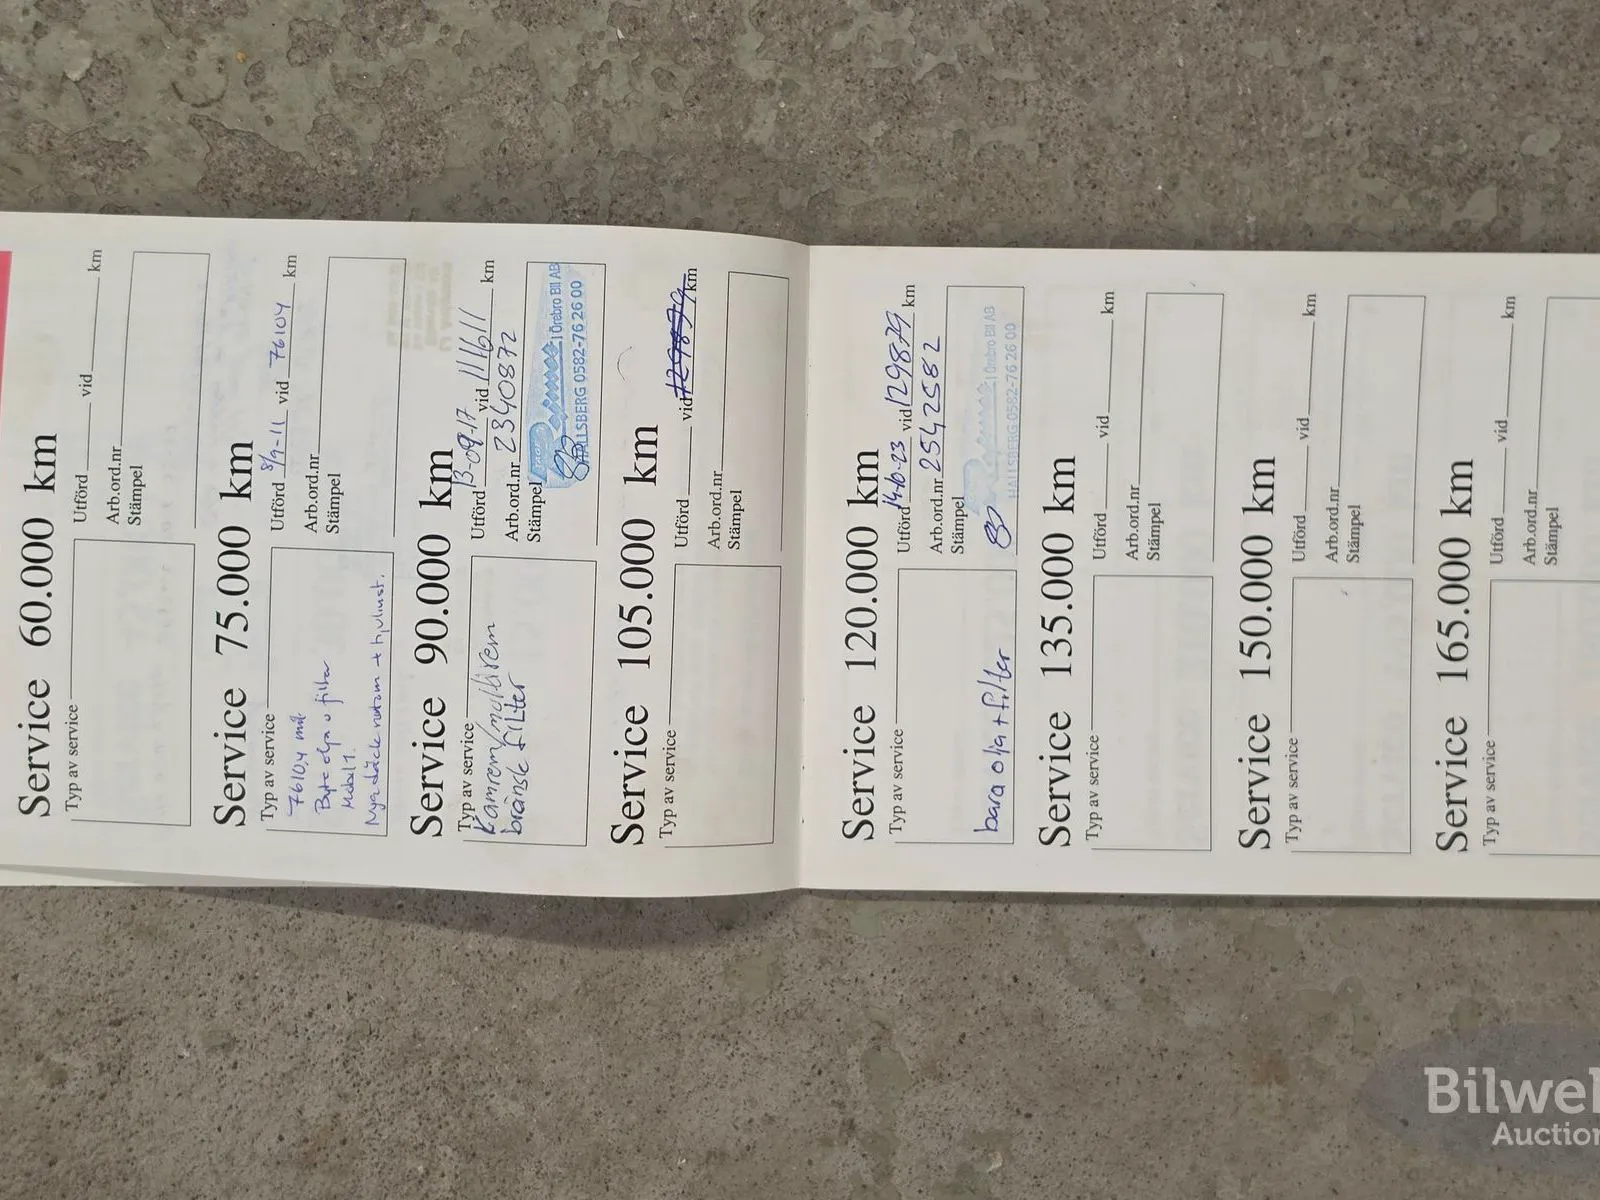 Service 60.000 km
Typ av service
Utförd vid km
Arb.ord.nr
Stämpel
Service 75.000 km
Typ av service
7610,4 mil.
Byte olja o filter
Mobil 1.
Nya däck runtom + hjulinst.
Utförd 8/9-11 vid 76104 km
Arb.ord.nr
Stämpel
Service 90.000 km
Typ av service
Kamrem/multirem
bränsle filter
Utförd 13-09-17 vid 111611 km
Arb.ord.nr 2340872
Stämpel
i Örebro Bil AB
HALLSBERG 0582-76 26 00
Service 105.000 km
Typ av service
Utförd vid 129879 km
Arb.ord.nr
Stämpel
Service 120.000 km
Typ av service
bara olja + filter
Utförd vid 129879 km
Arb.ord.nr 2542582
Stämpel
i Örebro Bil AB
HALLSBERG 0582-76 26 00
Service 135.000 km
Typ av service
Utförd vid km
Arb.ord.nr
Stämpel
Service 150.000 km
Typ av service
Utförd vid km
Arb.ord.nr
Stämpel
Service 165.000 km
Typ av service
Utförd vid km
Arb.ord.nr
Stämpel
Bilwel
Auction